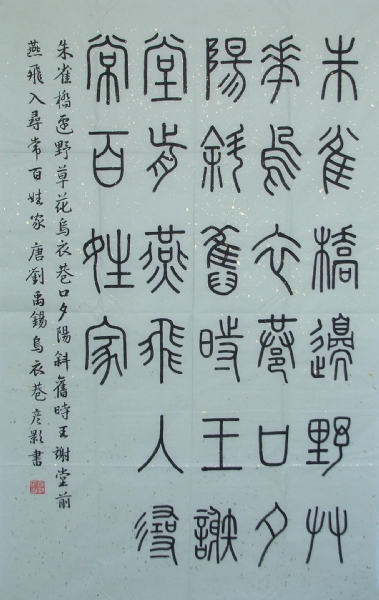 朱雀橋邊野艸
華烏衣巷口夕
陽斜舊時王謝
堂前燕飛入尋
常百姓家
朱雀橋邊野草花烏衣巷口夕陽斜舊時王謝堂前
燕飛入尋常百姓家 唐劉禹錫烏衣巷 彥影書